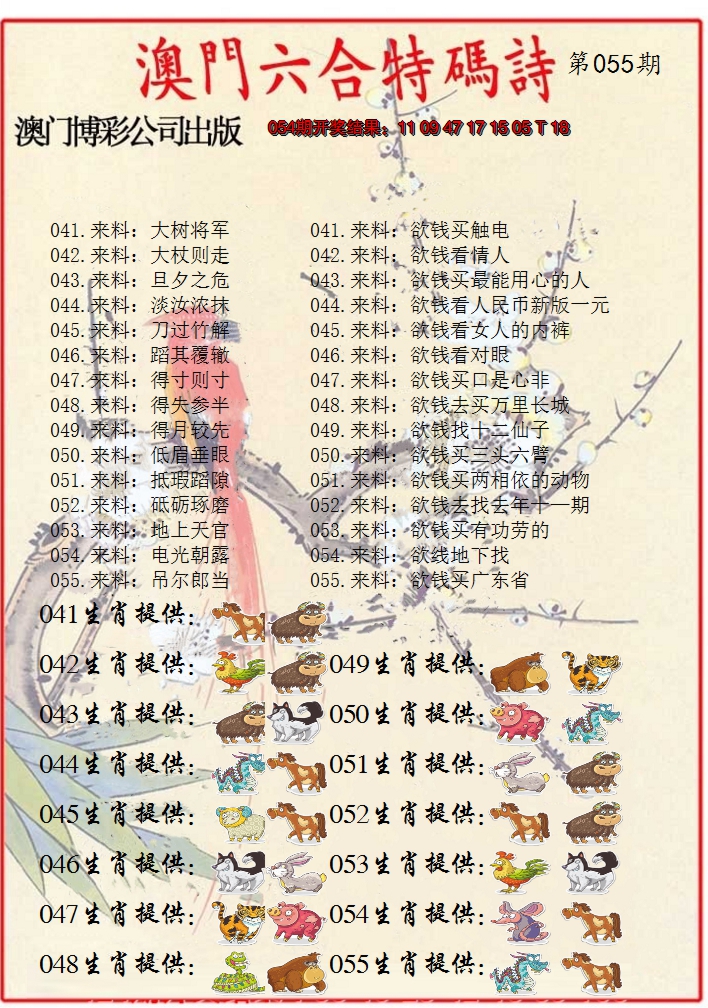 澳門六合特碼詩 第055期
澳门博彩公司出版 054期开奖结果：11 09 47 17 15 05 T 18
041.来料：大树将军 041.来料：欲钱买触电
042.来料：大杖则走 042.来料：欲钱看情人
043.来料：旦夕之危 043.来料：欲钱买最能用心的人
044.来料：淡妆浓抹 044.来料：欲钱看人民币新版一元
045.来料：刀过竹解 045.来料：欲钱看女人的内裤
046.来料：蹈其覆辙 046.来料：欲钱看对眼
047.来料：得寸则寸 047.来料：欲钱买口是心非
048.来料：得失参半 048.来料：欲钱去买万里长城
049.来料：得月较先 049.来料：欲钱找十二仙子
050.来料：低眉垂眼 050.来料：欲钱买三头六臂
051.来料：抵瑕蹈隙 051.来料：欲钱买两相依的动物
052.来料：砥砺琢磨 052.来料：欲钱去找去年十一期
053.来料：地上天官 053.来料：欲钱买有功劳的
054.来料：电光朝露 054.来料：欲线地下找
055.来料：吊尔郎当 055.来料：欲钱买广东省
041生肖提供：
042生肖提供： 049生肖提供：
043生肖提供： 050生肖提供：
044生肖提供： 051生肖提供：
045生肖提供： 052生肖提供：
046生肖提供： 053生肖提供：
047生肖提供： 054生肖提供：
048生肖提供： 055生肖提供：